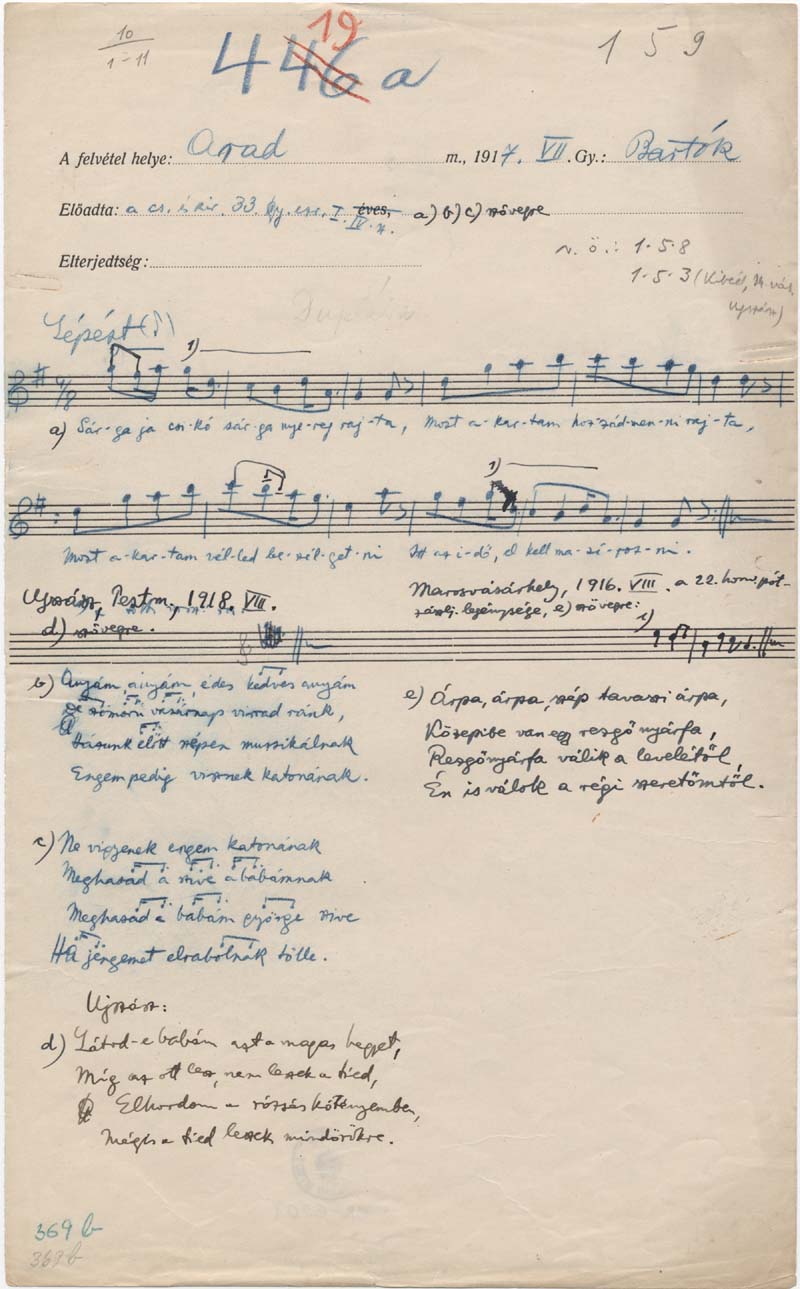 10
1-11
19
446 a
1 5 9
A felvétel helye: Arad m., 1917. VII. Gy.: Bartók
Előadta: a cs. és kir. 33. gy. ezr. I. éves, a) b) c) szövegre
IV. z.
Elterjedtség:
v. ö.: 1-5-8
1-5-3 (Kibéd,
Ujszász)
Lépést
1)
a) Sár-ga ja csi-kó sár-ga nye-reg raj-ta, Most a-kar-tam hoz-zád men-ni raj-ta,
1)
Most a-kar-tam vél-led be-szél-get-ni Itt az i-dő, el kell ma-sí-roz-ni.
Ujszász, Pestm., 1918. VIII.
d) szövegre.
Marosvásárhely, 1916. VIII. a 22. honv. pót-
zászlj. legénysége, e) szövegre:
1)
b) Anyám, anyám, édes kedves anyám
De szömörű vasárnaps virrad ránk,
Házunk előtt szépen muzsikálnak
Engem pedig visznek katonának.
e) Árpa, árpa, szép tavaszi árpa,
Közepibe van egy rezgő nyárfa,
Rezgőnyárfa válik a levelétől,
Én is válok a régi szeretőmtől.
c) Ne vigyenek engem katonának
Meghasad a szive a babámnak
Meghasad a babám gyönge szive
Ha jengemet elrabolnak tőlle.
Ujszász:
d) Látod-e babám azt a magas hegyet,
Míg az ott lesz, nem leszek a tied,
Elhordom a rózsás kötényemben,
Mégis a tied leszek mindörökre.
369 b
369 b